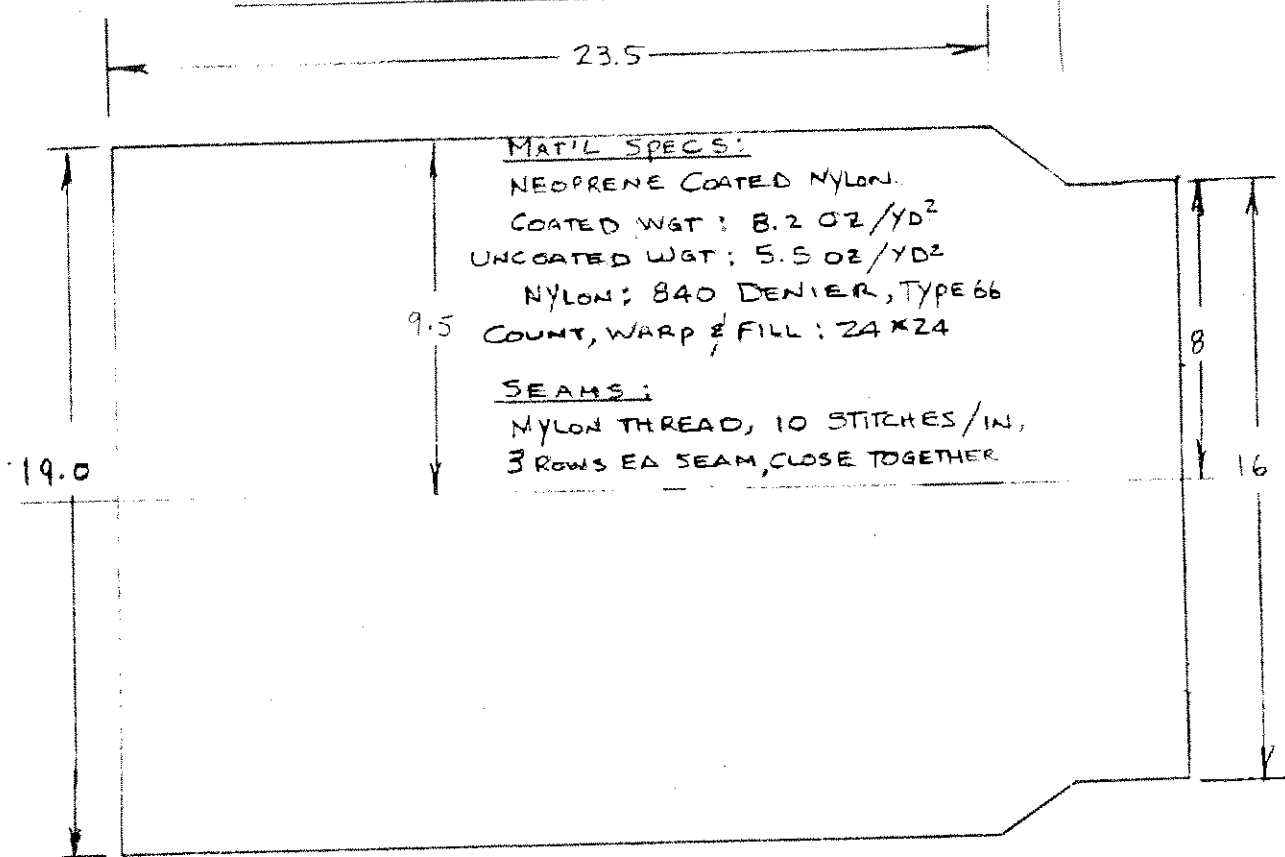 23.5
MAT'L SPECS:
NEOPRENE COATED NYLON.
COATED WGT: 8.2 OZ/YD²
UNCOATED WGT: 5.5 OZ/YD²
NYLON: 840 DENIER, TYPE 66
9.5
COUNT, WARP & FILL: 24×24
8
SEAMS:
NYLON THREAD, 10 STITCHES/IN,
3 ROWS EA SEAM, CLOSE TOGETHER
19.0
16